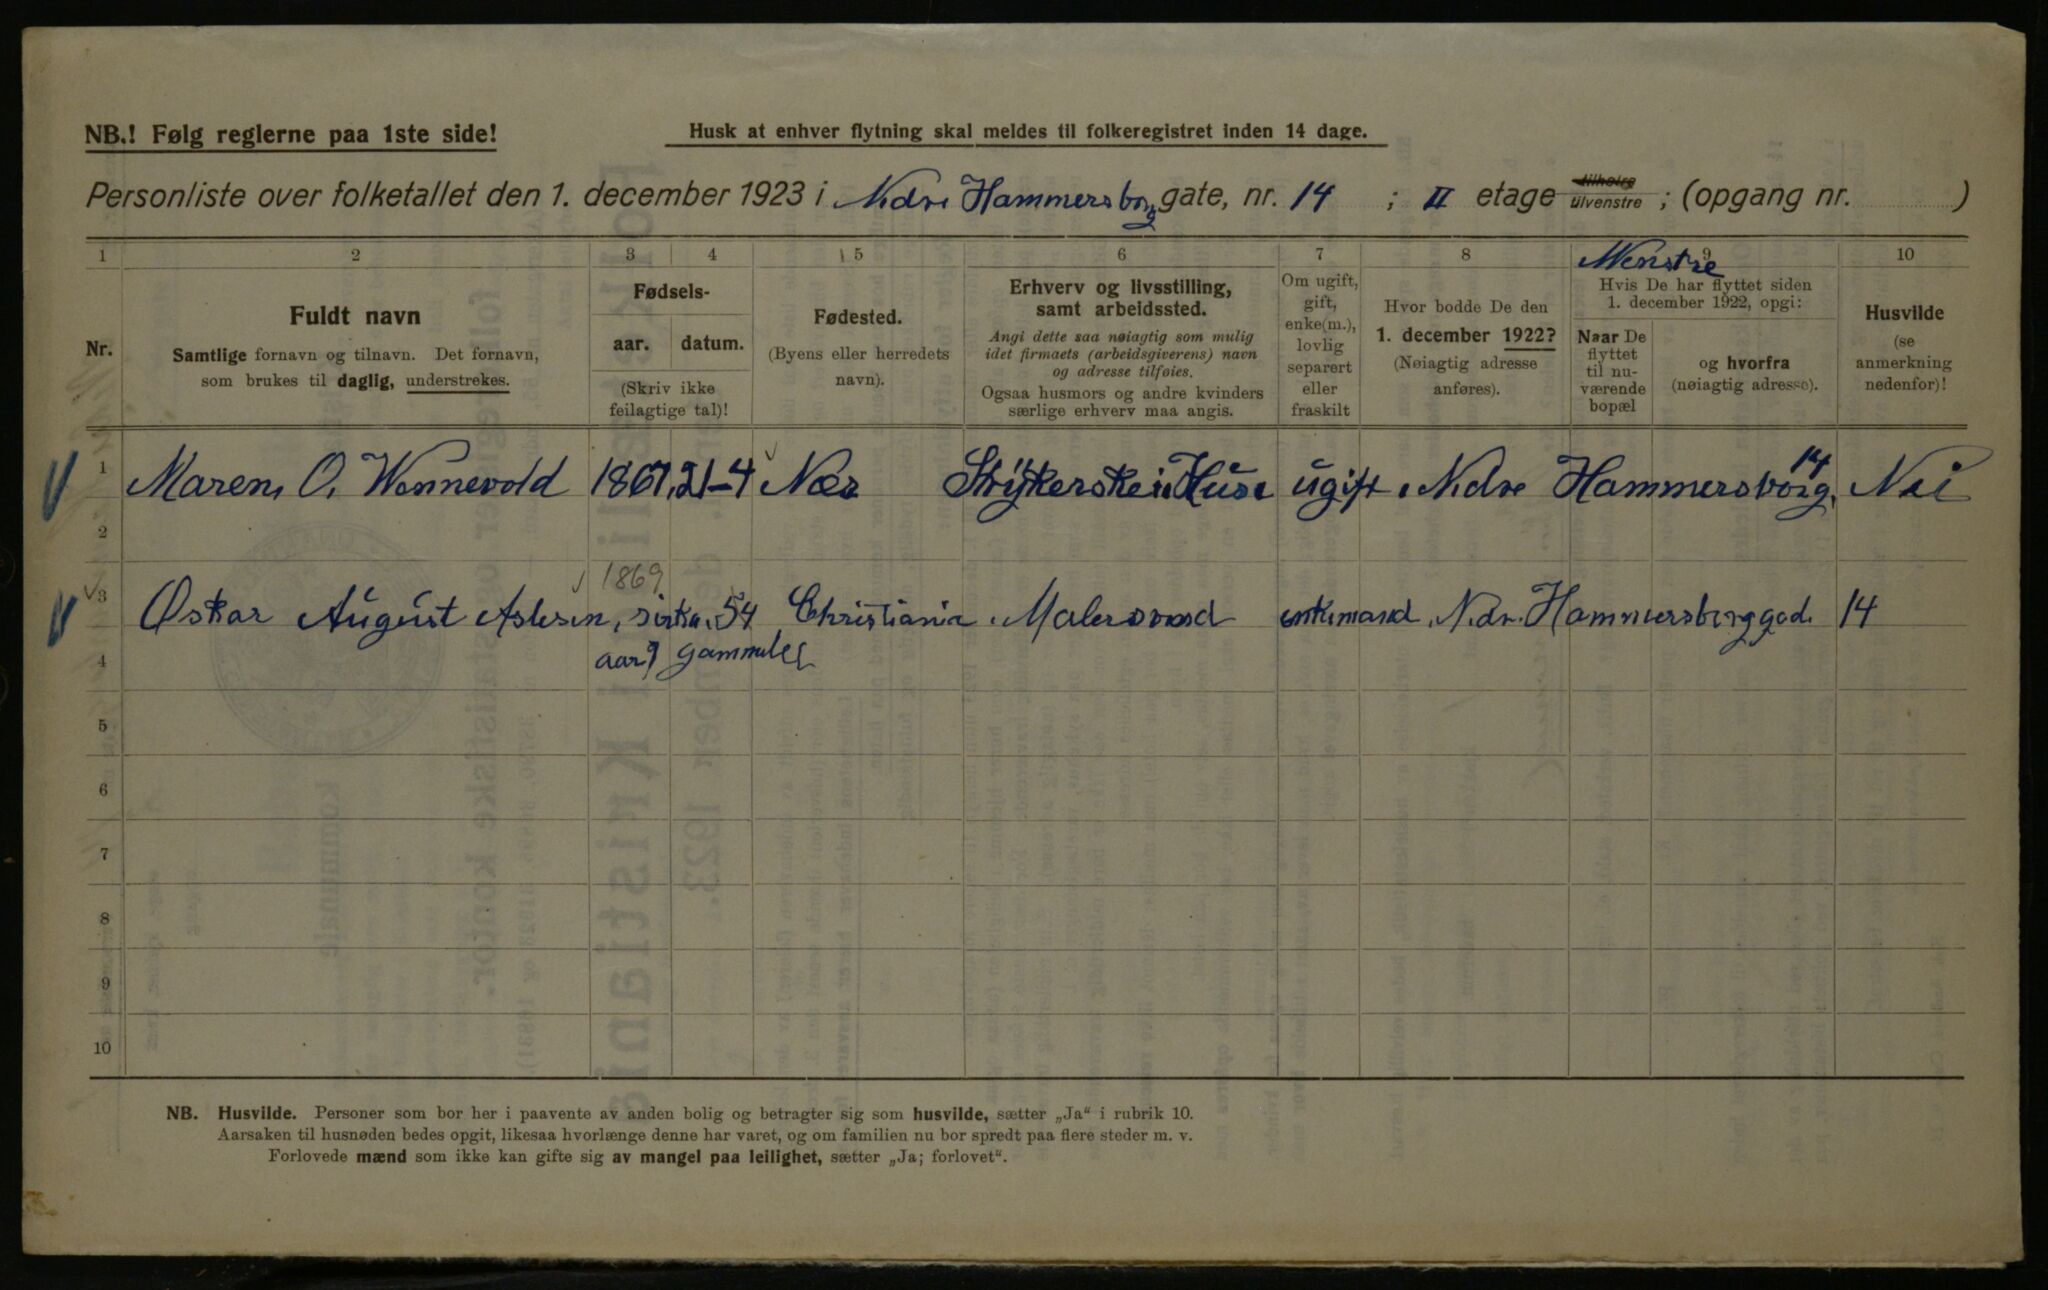 NB.! Følg reglerne paa 1ste side!
Husk at enhver flytning skal meldes til folkeregistret inden 14 dage.
Personliste over folketallet den 1. december 1923 i Nedre Hammersborg gate, nr. 14 ; II etage tilhøire tilvenstre ; (opgang nr. )
1 2 3 4 5 6 7 8 9 10
Wenstre
Nr.
Fuldt navn
Samtlige fornavn og tilnavn. Det fornavn,
som brukes til daglig, understrekes.
Fødsels-
aar. datum.
(Skriv ikke
feilagtige tal)!
Fødested.
(Byens eller herredets
navn).
Erhverv og livsstilling,
samt arbeidssted.
Angi dette saa nøiagtig som mulig
idet firmaets (arbeidsgiverens) navn
og adresse tilføies.
Ogsaa husmors og andre kvinders
særlige erhverv maa angis.
Om ugift,
gift,
enke(m.),
lovlig
separert
eller
fraskilt
Hvor bodde De den
1. december 1922?
(Nøiagtig adresse
anføres).
Hvis De har flyttet siden
1. december 1922, opgi:
Naar De
flyttet
til nu-
værende
bopæl
og hvorfra
(nøiagtig adresse).
Husvilde
(se
anmerkning
nedenfor)!
1 Maren O. Wennevold 1867, 21-4 Næs Strykerske i Huse ugift Nedre Hammersborg 14 Nei
2
1869
3 Oskar August Aslesen, sirka 54 Christiania Malersvend enkemand Nedr. Hammersborggad. 14
4 aar gammel
5
6
7
8
9
10
NB. Husvilde. Personer som bor her i paavente av anden bolig og betragter sig som husvilde, sætter „Ja“ i rubrik 10.
Aarsaken til husnøden bedes opgit, likesaa hvorlænge denne har varet, og om familien nu bor spredt paa flere steder m. v.
Forlovede mænd som ikke kan gifte sig av mangel paa leilighet, sætter „Ja; forlovet“.